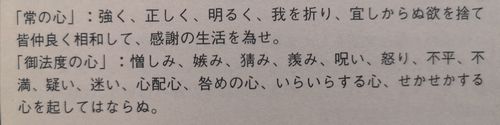 「常の心」：強く、正しく、明るく、我を折り、宜しからぬ欲を捨て
皆仲良く相和して、感謝の生活を為せ。
「御法度の心」：憎しみ、嫉み、猜み、羨み、呪い、怒り、不平、不
満、疑い、迷い、心配心、咎めの心、いらいらする心、せかせかする
心を起してはならぬ。